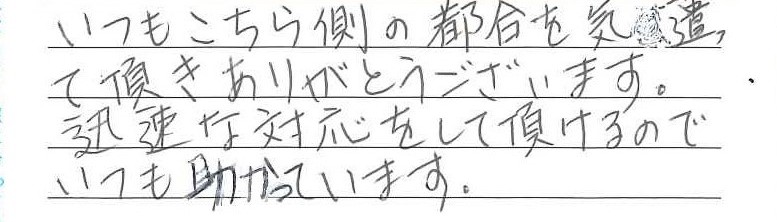 いつもこちら側の都合を気遣っ
て頂きありがとうございます。
迅速な対応をして頂けるので
いつも助かっています。